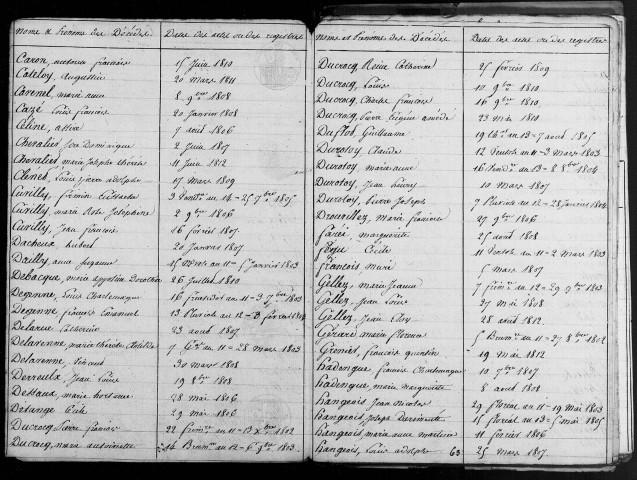 Noms et Prénoms des Décédés Dates des actes ou des registres
Caron, françois 15 Juin 1810
Cateloy, Augustin 20 Mars 1811
Carenel, marie anne 8 9bre 1808
Cazé, Louis françois 20 Janvier 1808
Celine, 7 aout 1806
Chevalier, Dominique 2 Juin 1807
Chevalier, marie Josephe therese 11 Juin 1812
Clines, Louis pierre adolphe 17 Mars 1809
Cuvilly, firmin 3 Vend.re an 14 = 25 7bre 1805
Cuvilly, marie Rose Josephine 2 9bre 1806
Cuvilly, Jean francois 16 fevrier 1807
Dacheux, hubert 20 Janvier 1807
Dailly, anne Suzanne 15 an 11 = 5 Janvier 1803
Debacque, marie Dorothée 26 Juillet 1810
Degenne, Louis Charlemagne 16 fructidor an 11 = 3 7bre 1803
Degenne, françois 13 Pluviose an 12 = 3 fevrier 1804
Delarue, 23 aout 1807
Delavenne, marie therese Clotilde 7 an 11 = 28 Mars 1803
Delavenne, 30 Mars 1808
Derreulx, Jean Louis 19 8bre 1808
Dessaux, marie 28 Mai 1806
Detange, 29 Mai 1806
Ducrocq, Pierre francois 22 frim.re an 11 = 13 Xbre 1802
Ducrocq, marie antoinette 14 Brum.re an 12 = 6 9bre 1803
Noms et Prénoms des Décédés Dates des actes ou des registres
Ducrocq, Marie Catherine 25 fevrier 1809
Ducrocq, Louise 10 9bre 1810
Ducrocq, Charles François 16 9bre 1810
Ducrocq, Pierre Eugène 23 Mai 1810
Duflos, Guillaume 19 an 13 = 7 aout 1805
Durotoy, Claude 12 Ventose an 11 = 3 Mars 1803
Durotoy, marie anne 16 Vend.re an 13 = 8 8bre 1804
Durotoy, Jean 10 Mars 1807
Durotoy, Pierre Joseph 7 Pluviose an 12 = 28 Janvier 1804
Drouillez, marie 27 9bre 1806
Faréi, marguerite 25 aout 1808
Cécile 11 Ventose an 11 = 2 Mars 1803
François, marie 5 Mars 1807
Gellez, marie Jeanne 7 frim.re an 12 = 29 9bre 1803
Gellez, Jean Louis 27 Mai 1808
Gellez, Jean Eloy 28 aout 1812
Gérard, marie 5 Brum.re an 11 = 27 8bre 1802
Grenier, francois quentin 19 Mai 1812
hadengue, francois Charlemagne 10 7bre 1807
hadengue, marie marguerite 8 aout 1808
hangeois, Jean Nicolas 29 floreal an 11 = 19 Mai 1803
hangeois, Joseph 15 floreal an 13 = 5 Mai 1805
hangeois, marie anne 11 fevrier 1806
hangeois, Louis adolphe 63 25 Mars 1807